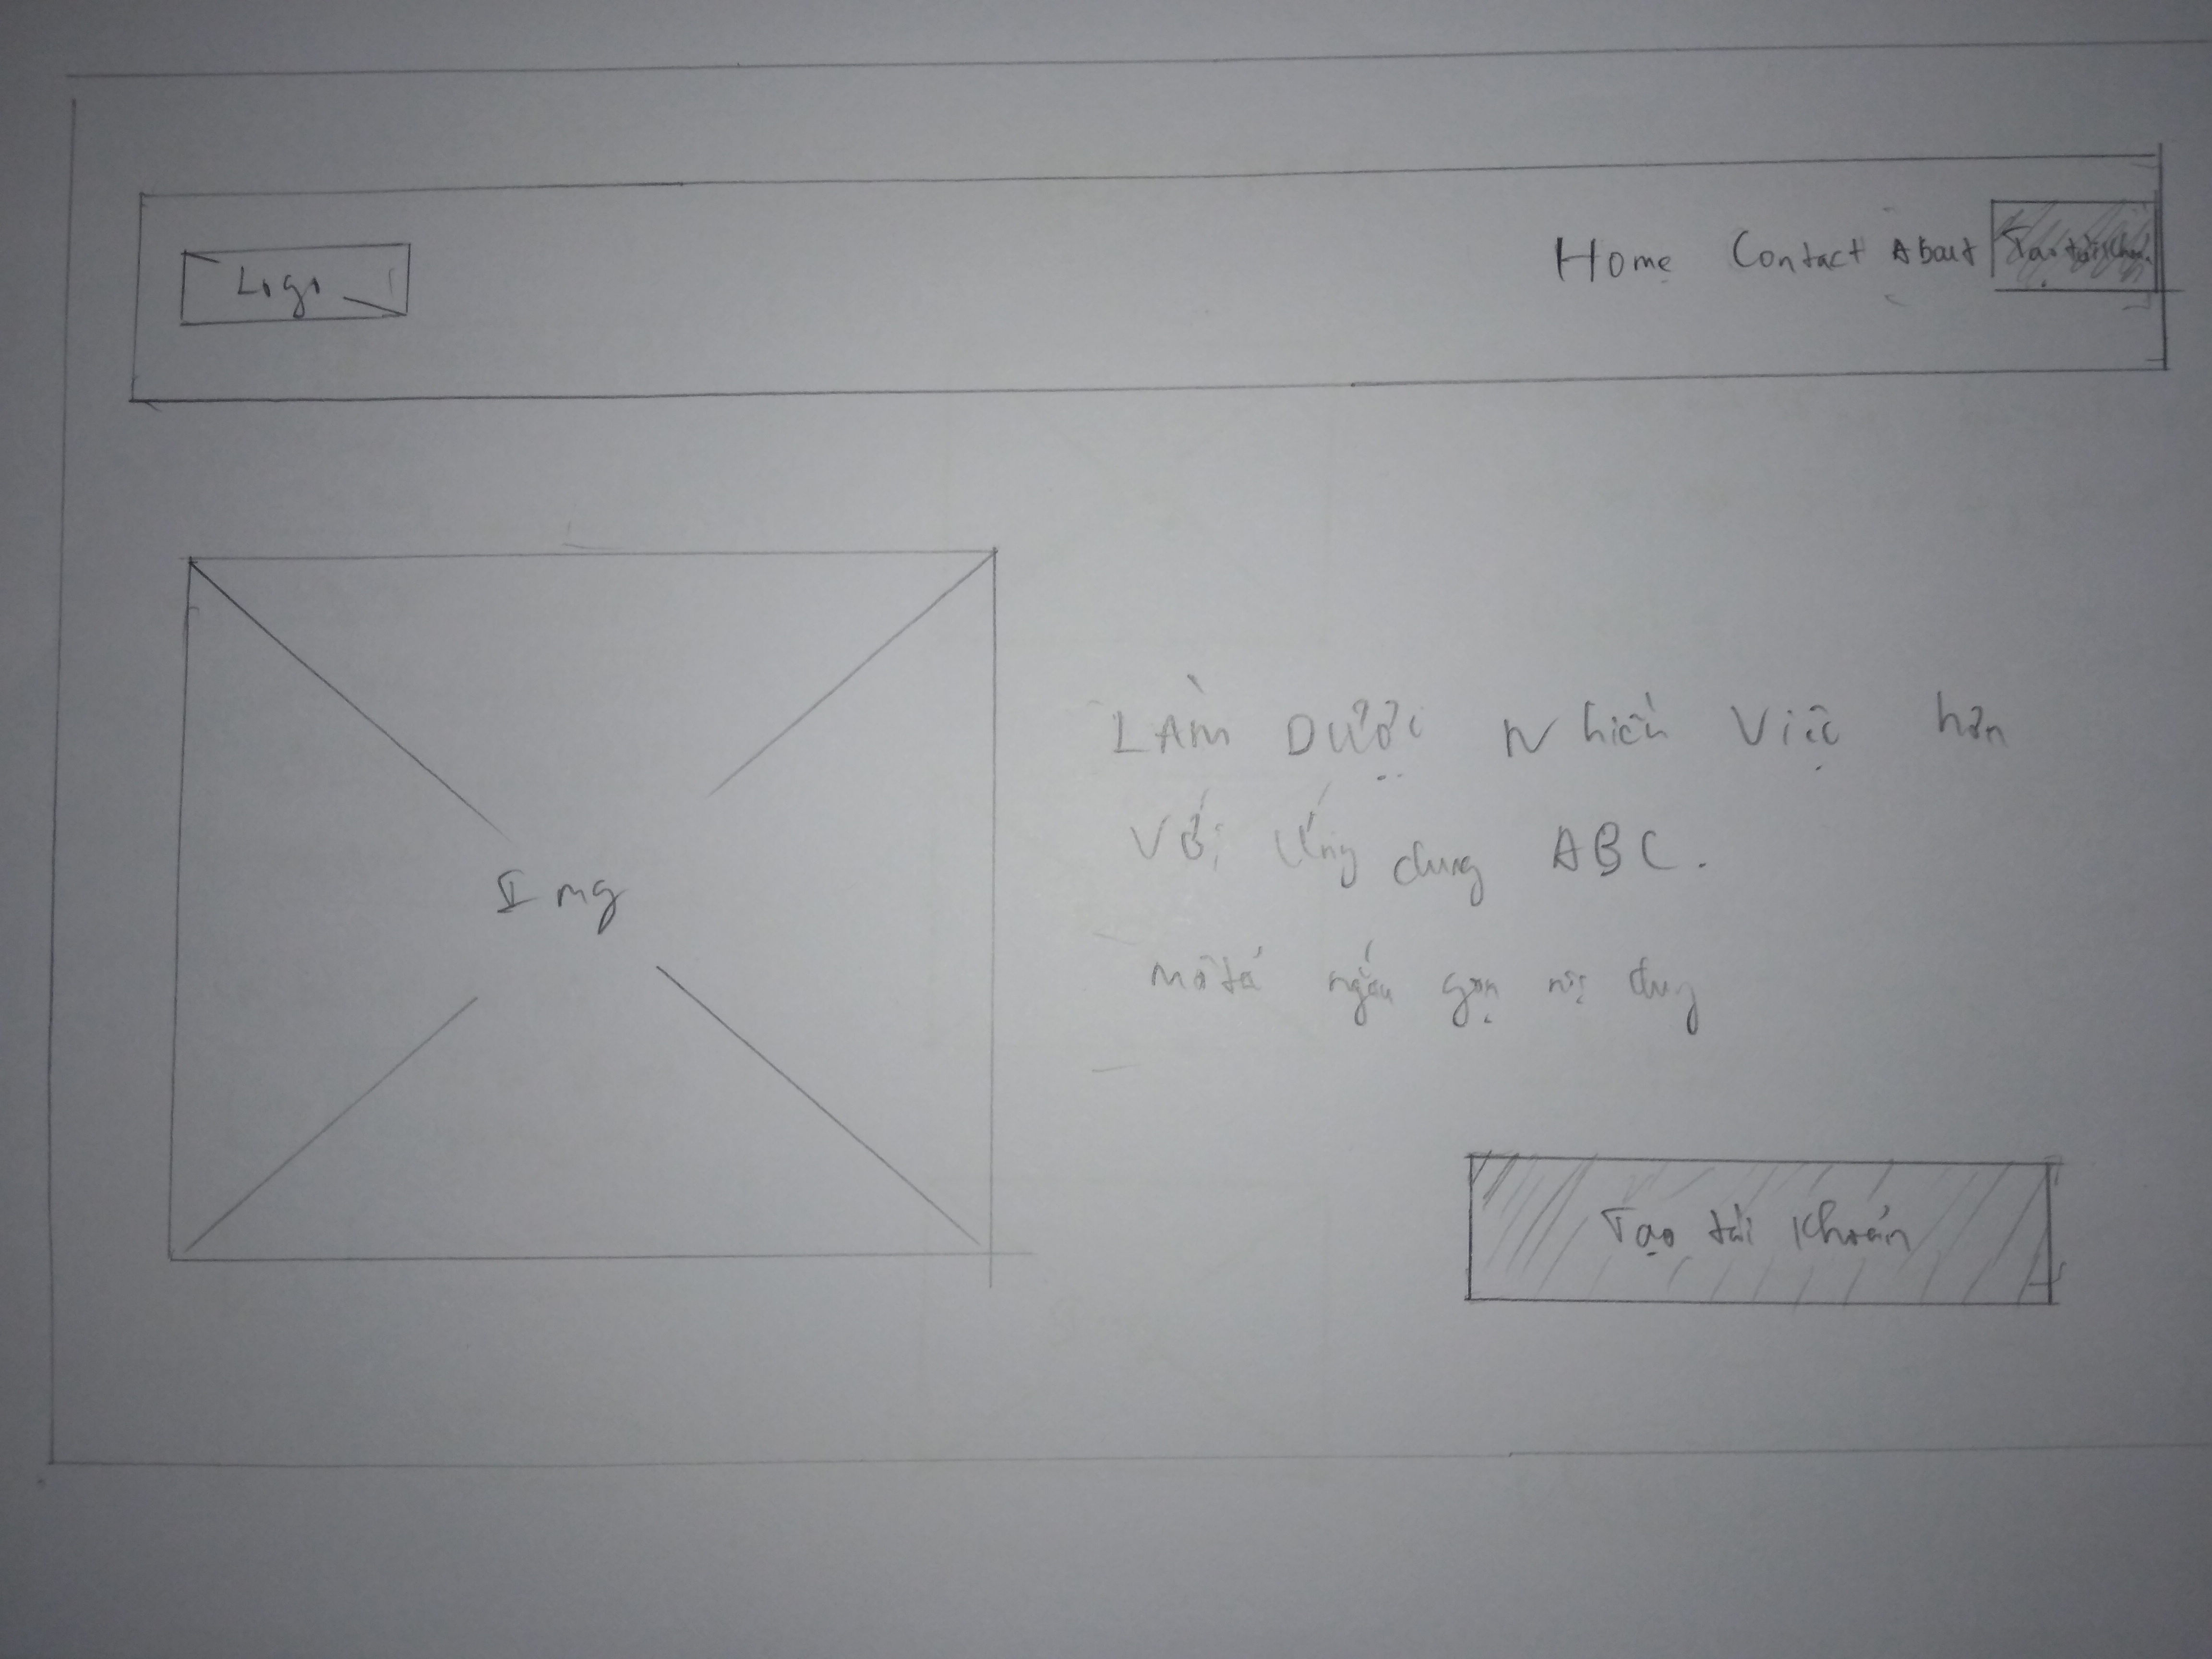 Logo
Home Contact About Tạo tài khoản
LÀM Được Nhiều Việc hơn
Với Ứng dung ABC.
Img
mô tả ngắn gọn nội dung
Tạo tài khoản